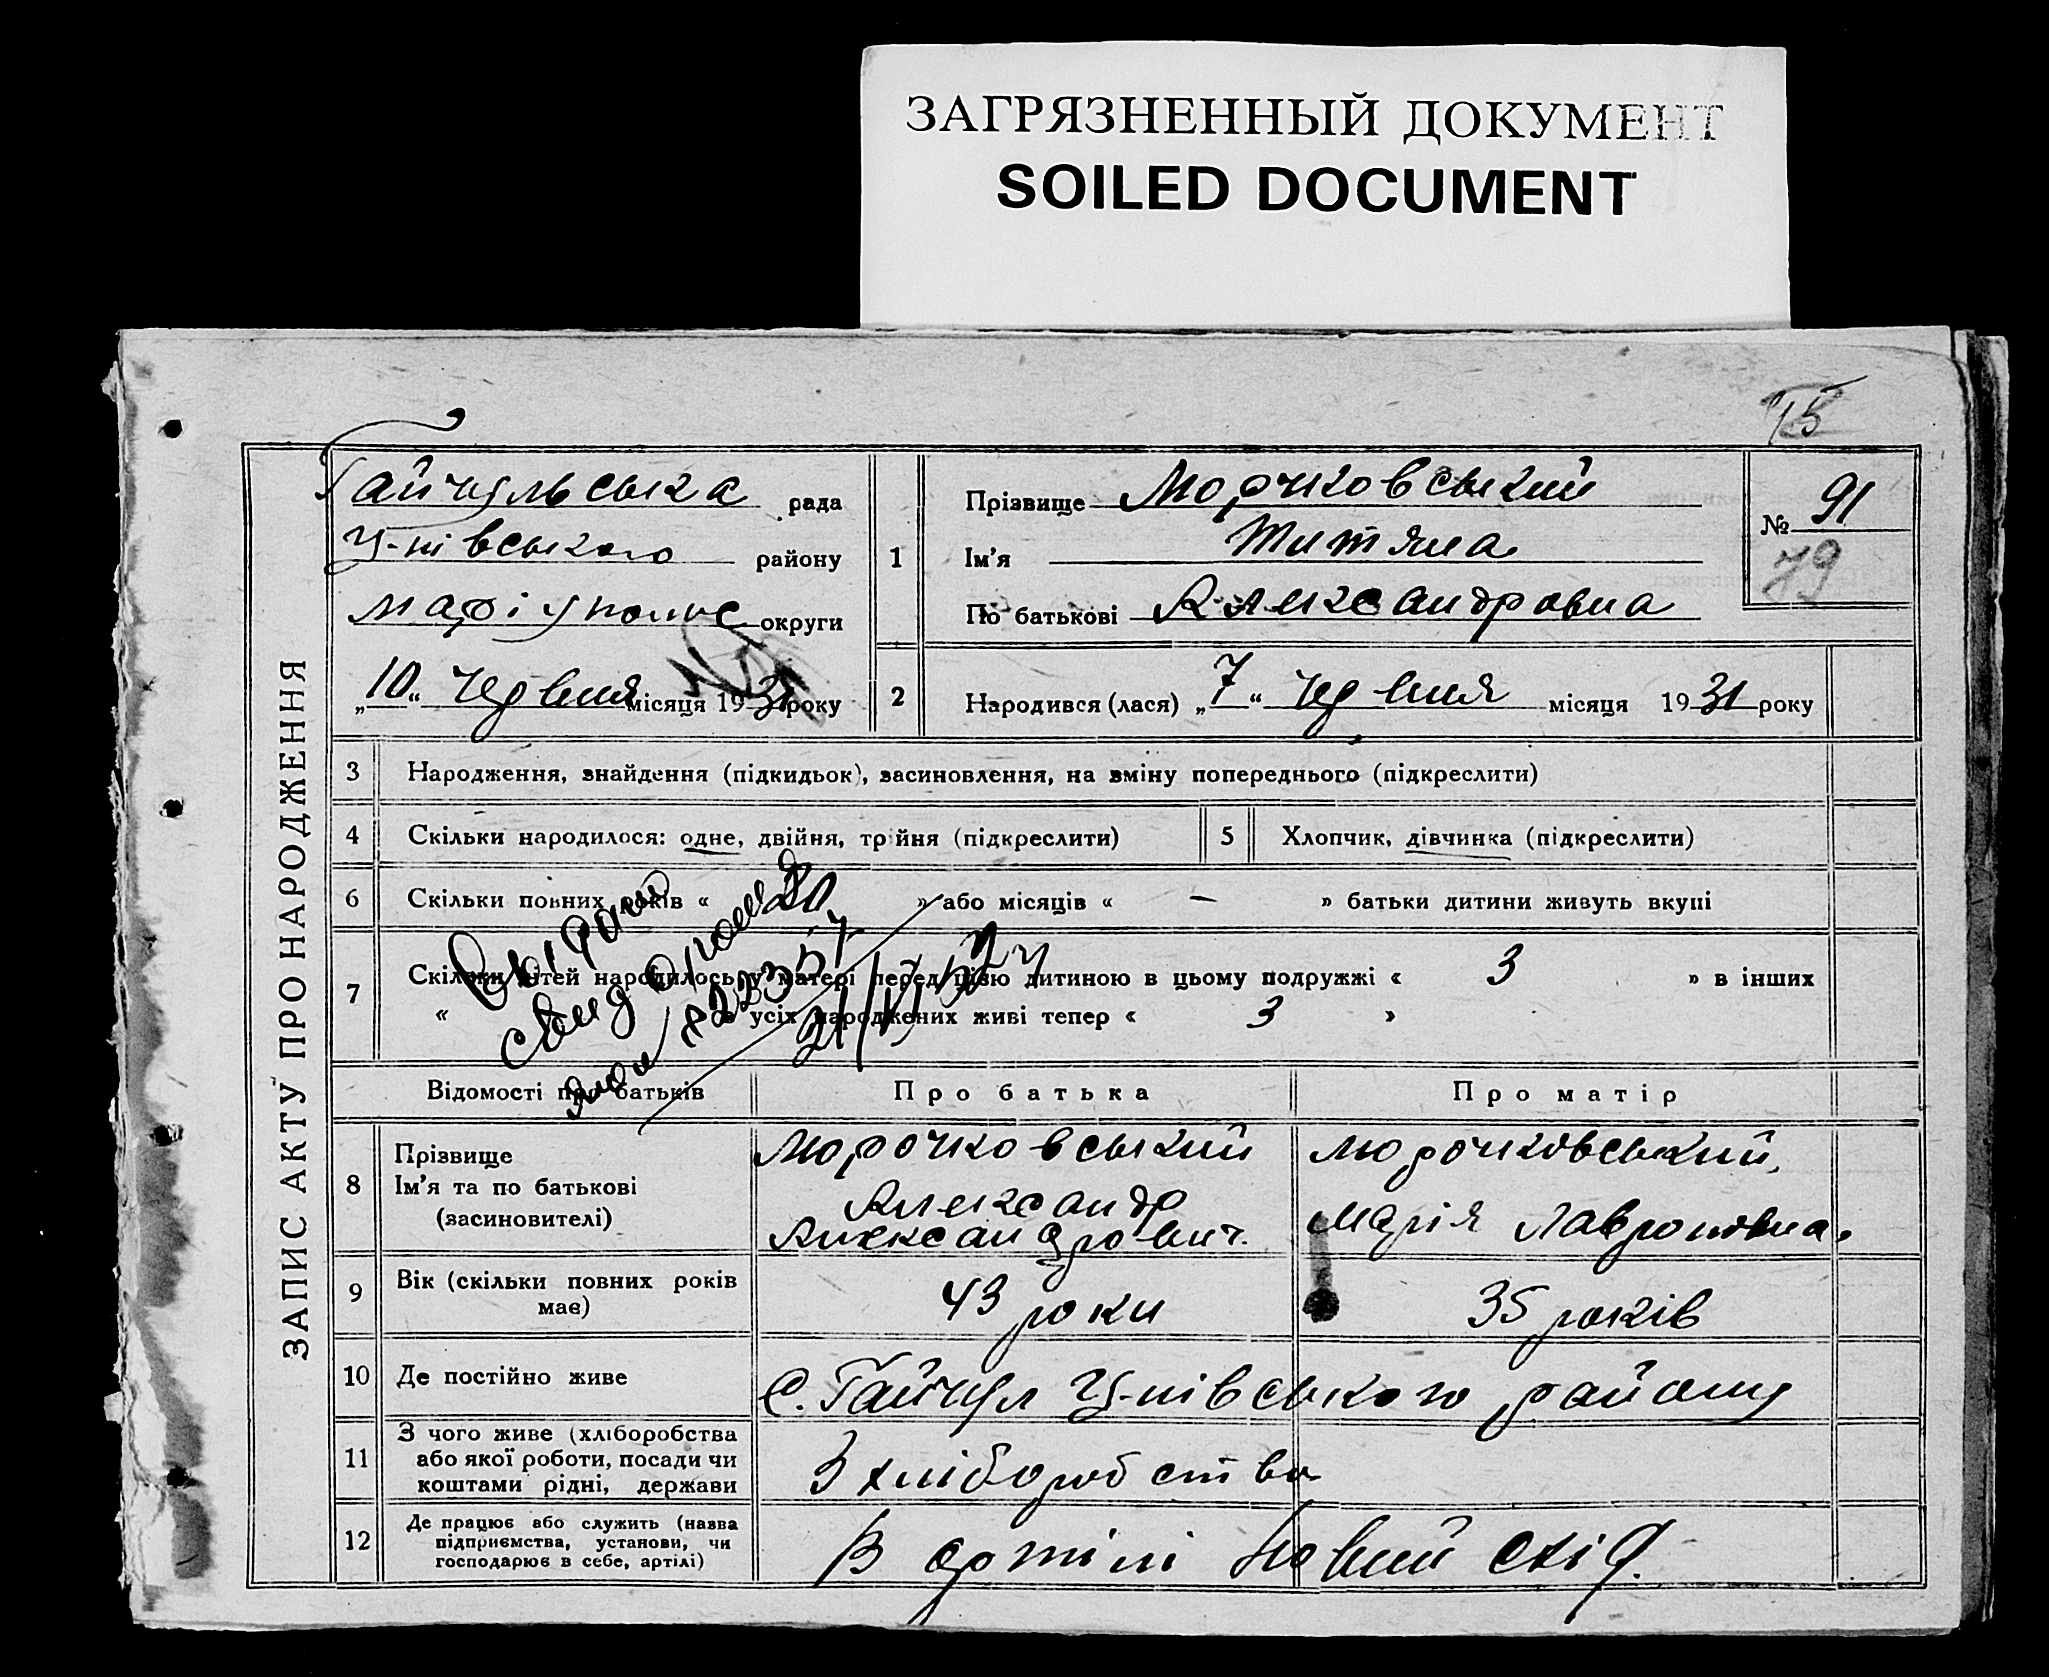 ЗАГРЯЗНЕННЫЙ ДОКУМЕНТ
SOILED DOCUMENT
75
ЗАПИС АКТУ ПРО НАРОДЖЕННЯ
Гайчульська рада
Ц-нівського району
маріуполус округи
„10“ червня місяця 1931 року
1
Прізвище Морчковський
Ім'я Титяна
По батькові Александровна
№ 91
79
2 Народився (лася) „7“ червня місяця 1931 року
3 Народження, знайдення (підкидьок), засиновлення, на зміну попереднього (підкреслити)
4 Скільки народилося: одне, двійня, трійня (підкреслити)
5 Хлопчик, дівчинка (підкреслити)
6 Скільки повних років « 20 » або місяців « — » батьки дитини живуть вкупі
7 Скільки дітей народилось у матері перед цією дитиною в цьому подружжі « 3 » в інших
« » усіх народжених живі тепер « 3 »
822357
21/VI 52
Відомості про батьків
Про батька
Про матір
8 Прізвище
Ім'я та по батькові
(засиновителі)
Морочковський
Александр
Александрович.
Морочковський,
Марія Лавроновна.
9 Вік (скільки повних років
має)
43 роки
35 років
10 Де постійно живе
С. Гайчул Ц-нівського району
11 З чого живе (хліборобства
або якої роботи, посади чи
коштами рідні, держави
З хліборобства
12 Де працює або служить (назва
підприємства, установи, чи
господарює в себе, артілі)
В артілі Новий схід.